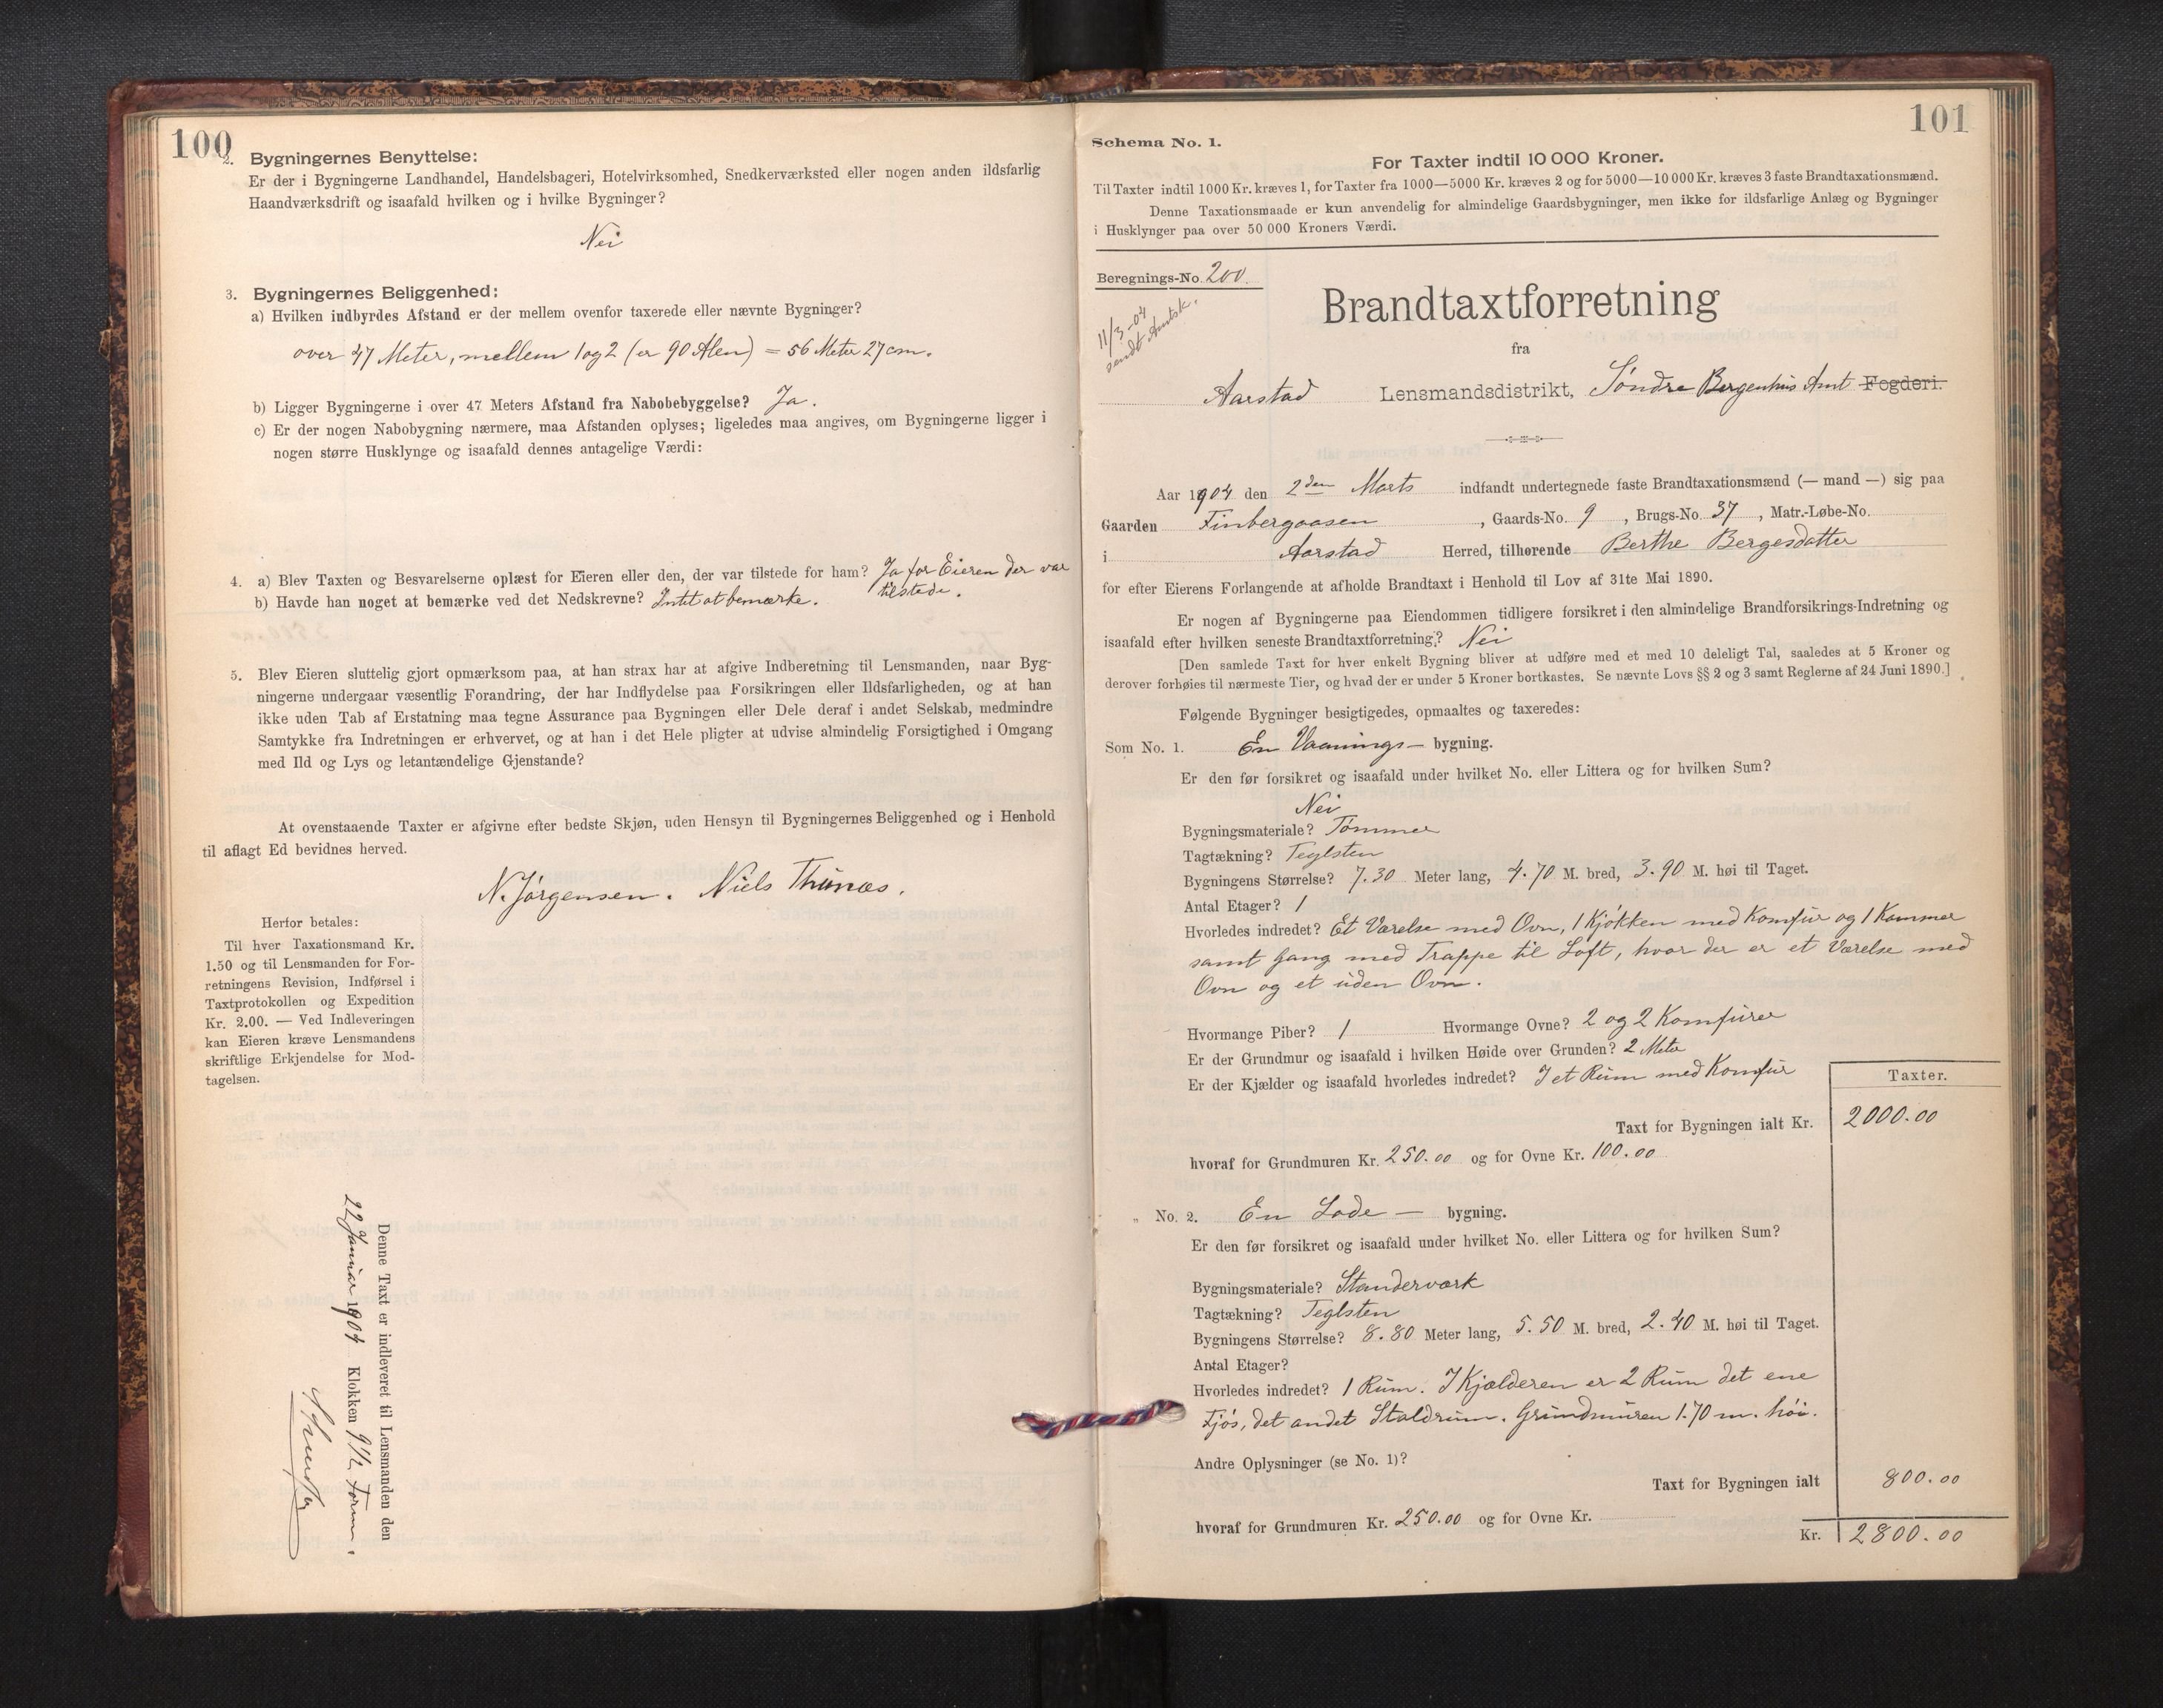 100
2. Bygningernes Benyttelse:
Er der i Bygningerne Landhandel, Handelsbageri, Hotelvirksomhed, Snedkerværksted eller nogen anden ildsfarlig
Haandværksdrift og isaafald hvilken og i hvilke Bygninger?
Nei
3. Bygningernes Beliggenhed:
a) Hvilken indbyrdes Afstand er der mellem ovenfor taxerede eller nævnte Bygninger?
over 47 Meter, mellem 1 og 2 (er 90 Alen) = 56 Meter 27 cm.
b) Ligger Bygningerne i over 47 Meters Afstand fra Nabobebyggelse? Ja.
c) Er der nogen Nabobygning nærmere, maa Afstanden oplyses; ligeledes maa angives, om Bygningerne ligger i
nogen større Husklynge og isaafald dennes antagelige Værdi:
4. a) Blev Taxten og Besvarelserne oplæst for Eieren eller den, der var tilstede for ham? Ja for Eieren der var
tilstede.
b) Havde han noget at bemærke ved det Nedskrevne? Intet at bemærke.
5. Blev Eieren sluttelig gjort opmærksom paa, at han strax har at afgive Indberetning til Lensmanden, naar Byg-
ningerne undergaar væsentlig Forandring, der har Indflydelse paa Forsikringen eller Ildsfarligheden, og at han
ikke uden Tab af Erstatning maa tegne Assurance paa Bygningen eller Dele deraf i andet Selskab, medmindre
Samtykke fra Indretningen er erhvervet, og at han i det Hele pligter at udvise almindelig Forsigtighed i Omgang
med Ild og Lys og letantændelige Gjenstande?
At ovenstaaende Taxter er afgivne efter bedste Skjøn, uden Hensyn til Bygningernes Beliggenhed og i Henhold
til aflagt Ed bevidnes herved.
N. Jørgensen. Niels Thunæs.
Herfor betales:
Til hver Taxationsmand Kr.
1.50 og til Lensmanden for For-
retningens Revision, Indførsel i
Taxtprotokollen og Expedition
Kr. 2.00. — Ved Indleveringen
kan Eieren kræve Lensmandens
skriftlige Erkjendelse for Mod-
tagelsen.
Denne Taxt er indleveret til Lensmanden den
22 Januar 1904 Klokken 9 1/2 Form.
101
Schema No. 1.
For Taxter indtil 10 000 Kroner.
Til Taxter indtil 1000 Kr. kræves 1, for Taxter fra 1000—5000 Kr. kræves 2 og for 5000—10 000 Kr. kræves 3 faste Brandtaxationsmænd.
Denne Taxationsmaade er kun anvendelig for almindelige Gaardsbygninger, men ikke for ildsfarlige Anlæg og Bygninger
i Husklynger paa over 50 000 Kroners Værdi.
Beregnings-No. 200.
11/3-04
sendt Amtsk.
Brandtaxtforretning
fra
Aarstad Lensmandsdistrikt, Søndre Bergenhus Amt Fogderi.
Aar 1904 den 2den Marts indfandt undertegnede faste Brandtaxationsmænd (— mand —) sig paa
Gaarden Finbergaasen, Gaards-No. 9, Brugs-No. 37, Matr.-Løbe-No.
i Aarstad Herred, tilhørende Berthe Bergesdatter
for efter Eierens Forlangende at afholde Brandtaxt i Henhold til Lov af 31te Mai 1890.
Er nogen af Bygningerne paa Eiendommen tidligere forsikret i den almindelige Brandforsikrings-Indretning og
isaafald efter hvilken seneste Brandtaxtforretning? Nei
[Den samlede Taxt for hver enkelt Bygning bliver at udføre med et med 10 deleligt Tal, saaledes at 5 Kroner og
derover forhøies til nærmeste Tier, og hvad der er under 5 Kroner bortkastes. Se nævnte Lovs §§ 2 og 3 samt Reglerne af 24 Juni 1890.]
Følgende Bygninger besigtigedes, opmaaltes og taxeredes:
Som No. 1. En Vaanings— bygning.
Er den før forsikret og isaafald under hvilket No. eller Littera og for hvilken Sum?
Nei
Bygningsmateriale? Tømmer
Tagtækning? Teglsten
Bygningens Størrelse? 7.30 Meter lang, 4.70 M. bred, 3.90 M. høi til Taget.
Antal Etager? 1
Hvorledes indredet? Et Værelse med Ovn, 1 Kjøkken med Komfür og 1 Kammer
samt Gang med Trappe til Loft, hvor der er et Værelse med
Ovn og et uden Ovn.
Hvormange Piber? 1 Hvormange Ovne? 2 og 2 Komfürer
Er der Grundmur og isaafald i hvilken Høide over Grunden? 2 Meter
Er der Kjælder og isaafald hvorledes indredet? I et Rum med Komfür
Taxter.
Taxt for Bygningen ialt Kr. 2000.00
hvoraf for Grundmuren Kr. 250.00 og for Ovne Kr. 100.00
„ No. 2. En Lade — bygning.
Er den før forsikret og isaafald under hvilket No. eller Littera og for hvilken Sum?
Bygningsmateriale? Standerværk
Tagtækning? Teglsten
Bygningens Størrelse? 8.80 Meter lang, 5.50 M. bred, 2.40 M. høi til Taget.
Antal Etager?
Hvorledes indredet? 1 Rum. I Kjælderen er 2 Rum det ene
Fjøs, det andet Staldrum. Grundmuren 1.70 m. høi.
Andre Oplysninger (se No. 1)?
Taxt for Bygningen ialt 800.00
hvoraf for Grundmuren Kr. 250.00 og for Ovne Kr.
Kr. 2800.00